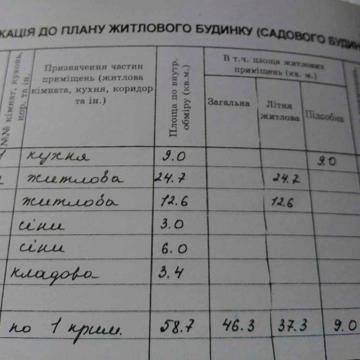 КАЦІЯ ДО ПЛАНУ ЖИТЛОВОГО БУДИНКУ (САДОВОГО БУДИН
№№ кімнат, кухонь, кор. та ін.
Призначення частин приміщень (житлова кімната, кухня, коридор та ін.)
Площа по внутр. обміру (кв.м.)
В т.ч. площа житлових приміщень (кв. м.)
Загальна
Літня житлова
Підсобна
кухня 9.0 9.0
житлова 24.7 24.7
житлова 12.6 12.6
сіни 3.0
сіни 6.0
кладова 3.4
по 1 прим. 58.7 46.3 37.3 9.0